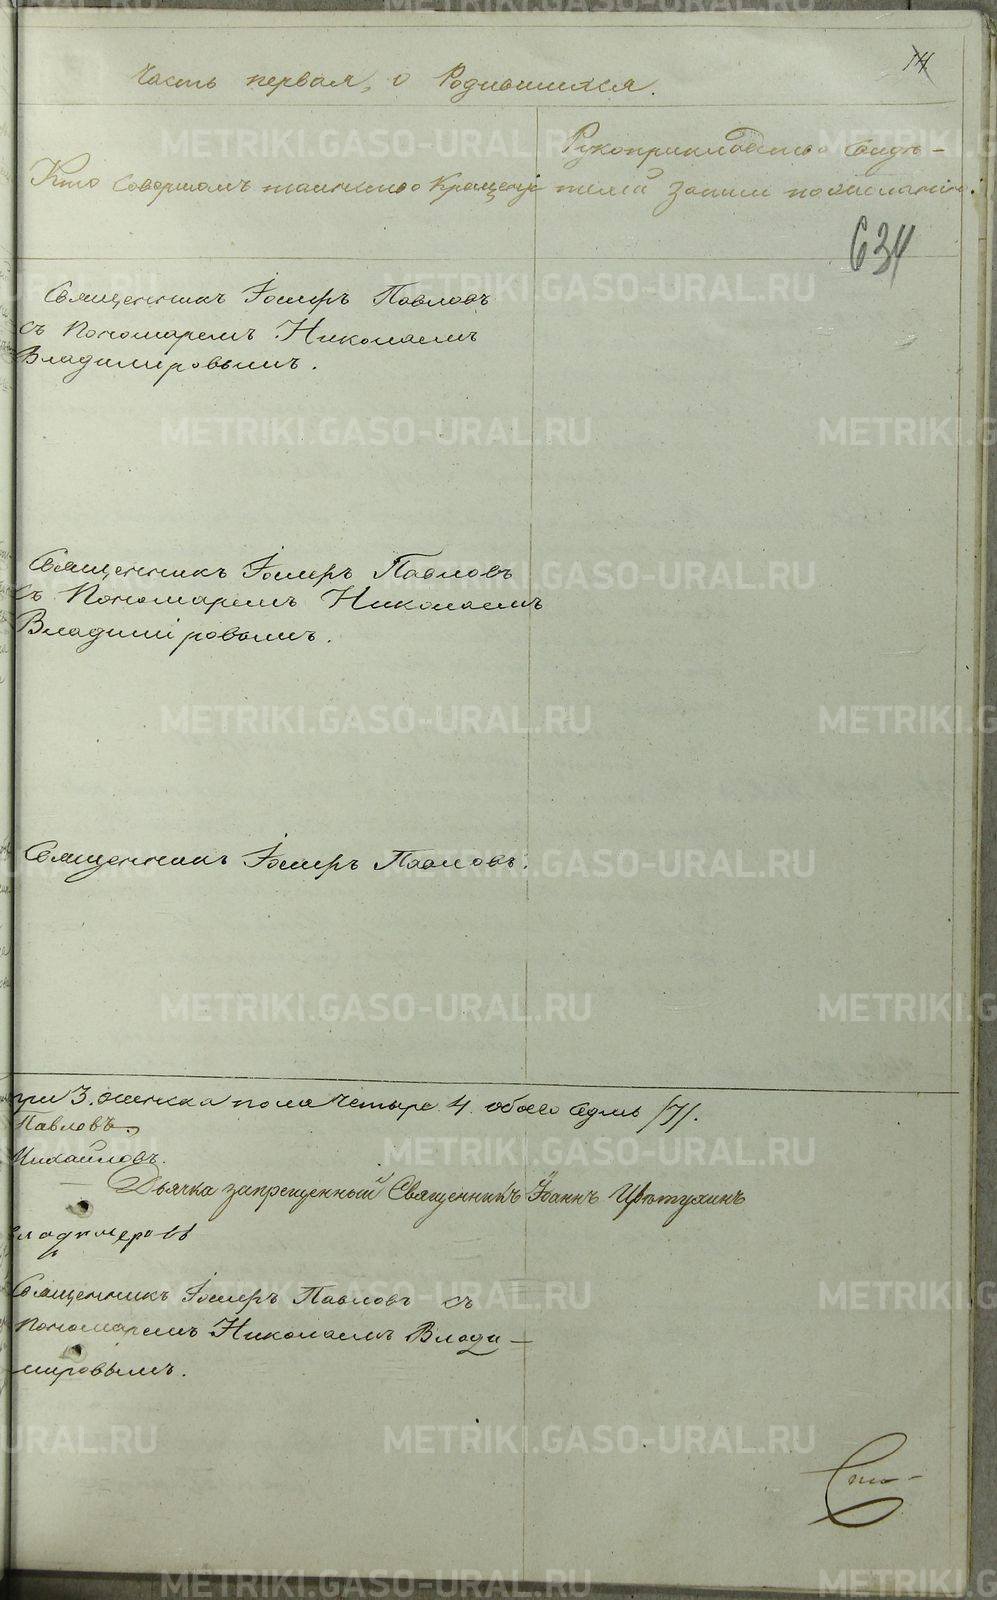 14
Часть первая, о Родившихся.
Кто совершалъ таинство Крещенія
Рукоприкладство Свидѣ-
телей записи по желанію.
634
Священникъ Іосифъ Павловъ
съ Пономаремъ Николаемъ
Владиміровымъ.
Священникъ Іосифъ Павловъ
съ Пономаремъ Николаемъ
Владиміровымъ.
Священникъ Іосифъ Павловъ.
три 3. женска пола четыре 4. обоего седмь /7/.
Павловъ
Михайловъ.
Дьячка запрещенный Священникъ Іоаннъ Цвѣтухинъ
Священникъ Іосифъ Павловъ съ
Пономаремъ Николаемъ Влади-
мировымъ.
METRIKI.GASO-URAL.RU